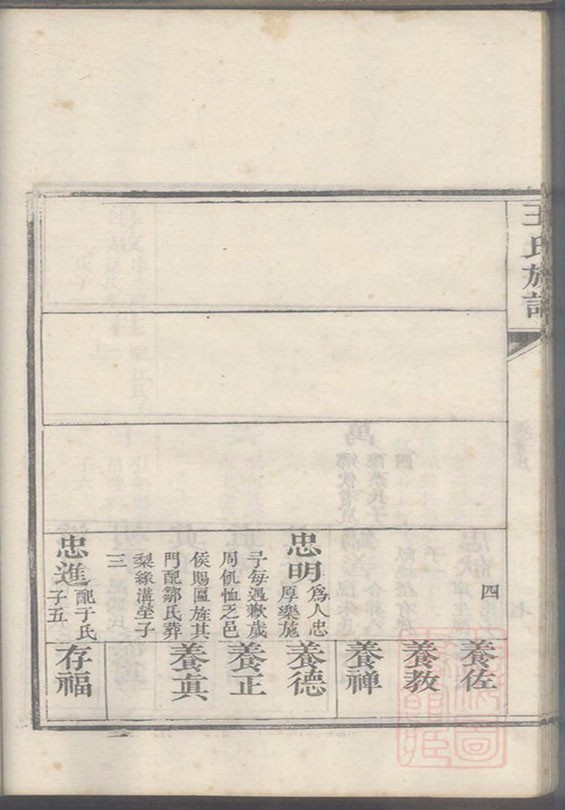 王氏族譜
四
養佐
養教
養禅
忠明
爲人忠
厚樂施
予每遇歉歲
周飢恤乏邑
侯賜匾旌其
門配鄒氏葬
梨緣溝塋子
三
養德
養正
養真
忠進
配于氏
子五
存福